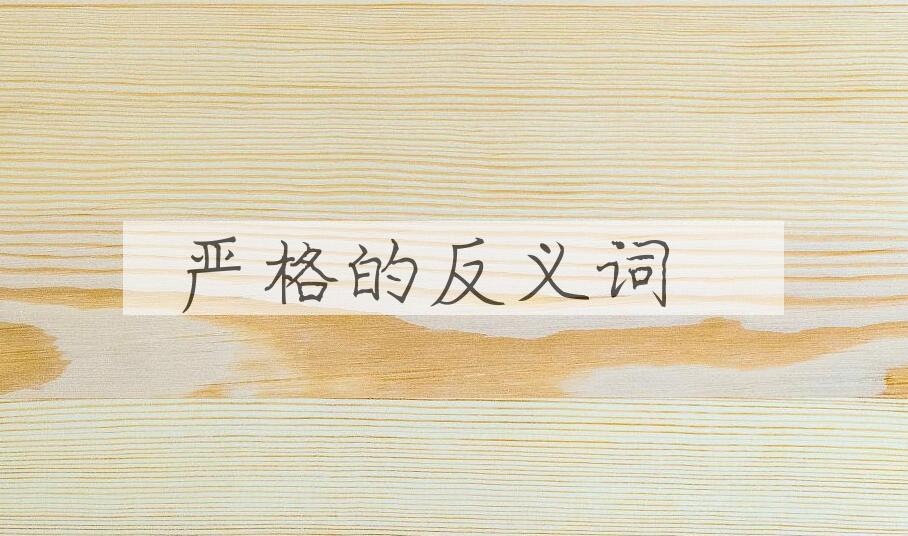 严格的反义词